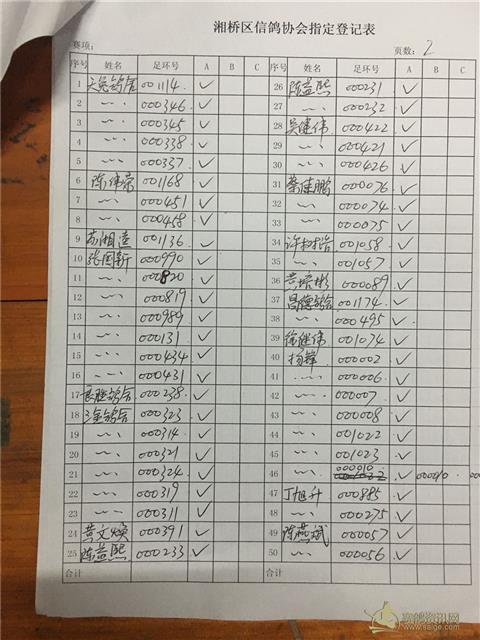 湘桥区信鸽协会指定登记表
赛项： 页数：2
序号 姓名 足环号 A B C 序号 姓名 足环号 A B C
1 天兔鸽舍 001114. ✓ 26 陈益熙 000231 ✓
2 〃 000346. ✓ 27 〃 000232 ✓
3 〃 000345 ✓ 28 吴健伟 000422 ✓
4 〃 000338 ✓ 29 〃 000421 ✓
5 〃 000337 ✓ 30 〃 000426 ✓
6 陈伟荣 001168 ✓ 31 蔡佳鹏 000076 ✓
7 〃 000451 ✓ 32 〃 000074 ✓
8 〃 000458 ✓ 33 〃 000075 ✓
9 苏湘 001136 ✓ 34 许 001058 ✓
10 张国新 000990 ✓ 35 〃 001057 ✓
11 〃 000820 ✓ 36 黄培彬 000089 ✓
12 〃 000819 ✓ 37 昌德鸽舍 001174 ✓
13 〃 000989 ✓ 38 〃 000495 ✓
14 〃 000131 ✓ 39 徐继伟 001074 ✓
15 〃 000434 ✓ 40 杨锋 000002 ✓
16 〃 000431 ✓ 41 〃 000006 ✓
17 长胜鸽舍 000238. ✓ 42 〃 00007 ✓
18 三金鸽舍 000323 ✓ 43 〃 000008 ✓
19 〃 000314 ✓ 44 〃 001022 ✓
20 〃 000321 ✓ 45 〃 001023 ✓
21 〃 000324 ✓ 46 〃 000010 ✓ 000010
22 〃 000319 ✓ 47 丁旭升 000885 ✓
23 〃 000311 ✓ 48 〃 000275 ✓
24 黄文焕 000391 ✓ 49 陈燕斌 000057 ✓
25 陈益熙 000233 ✓ 50 〃 000056 ✓
合计 合计
赛鸽资讯网
www.saige.com